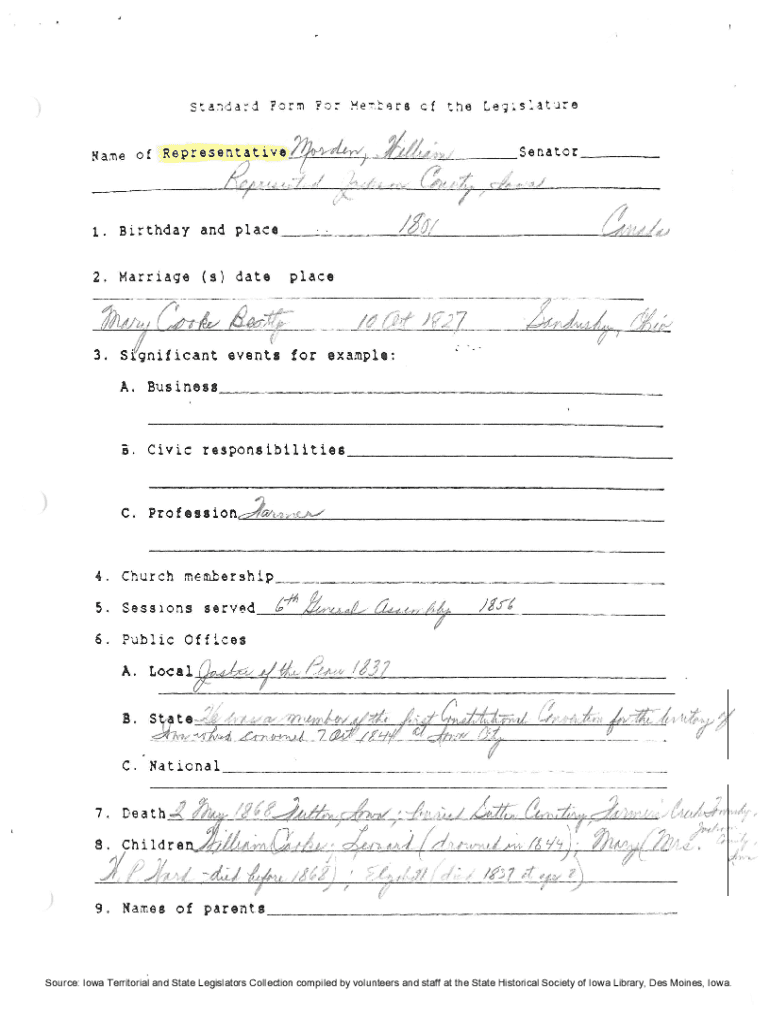 Standard Form For Members of the Legislature
Name of Representative Morden, William Senator
Represented Jackson County, Iowa
1. Birthday and place 1801 Canada
2. Marriage (s) date place
Mary Cooke Beatty 10 Oct 1827 Sandusky, Ohio
3. Significant events for example:
A. Business
B. Civic responsibilities
C. Profession Farmer
4. Church membership
5. Sessions served 6th General Assembly 1856
6. Public Offices
A. Local Justice of the Peace 1837
B. State He was a member of the first Constitutional Convention for the territory of
Iowa which convened 7 Oct 1844 at Iowa City
C. National
7. Death 2 May 1868 Fulton, Iowa; buried Cemetery Farmers Creek Township,
Jackson
8. Children William Cooke; Leonard (drowned in 1844); Mary (Mrs. County,
Iowa
H. P. Ward - died before 1868); Elizabeth (died 1837 at age 8)
9. Names of parents
Source: Iowa Territorial and State Legislators Collection compiled by volunteers and staff at the State Historical Society of Iowa Library, Des Moines, Iowa.